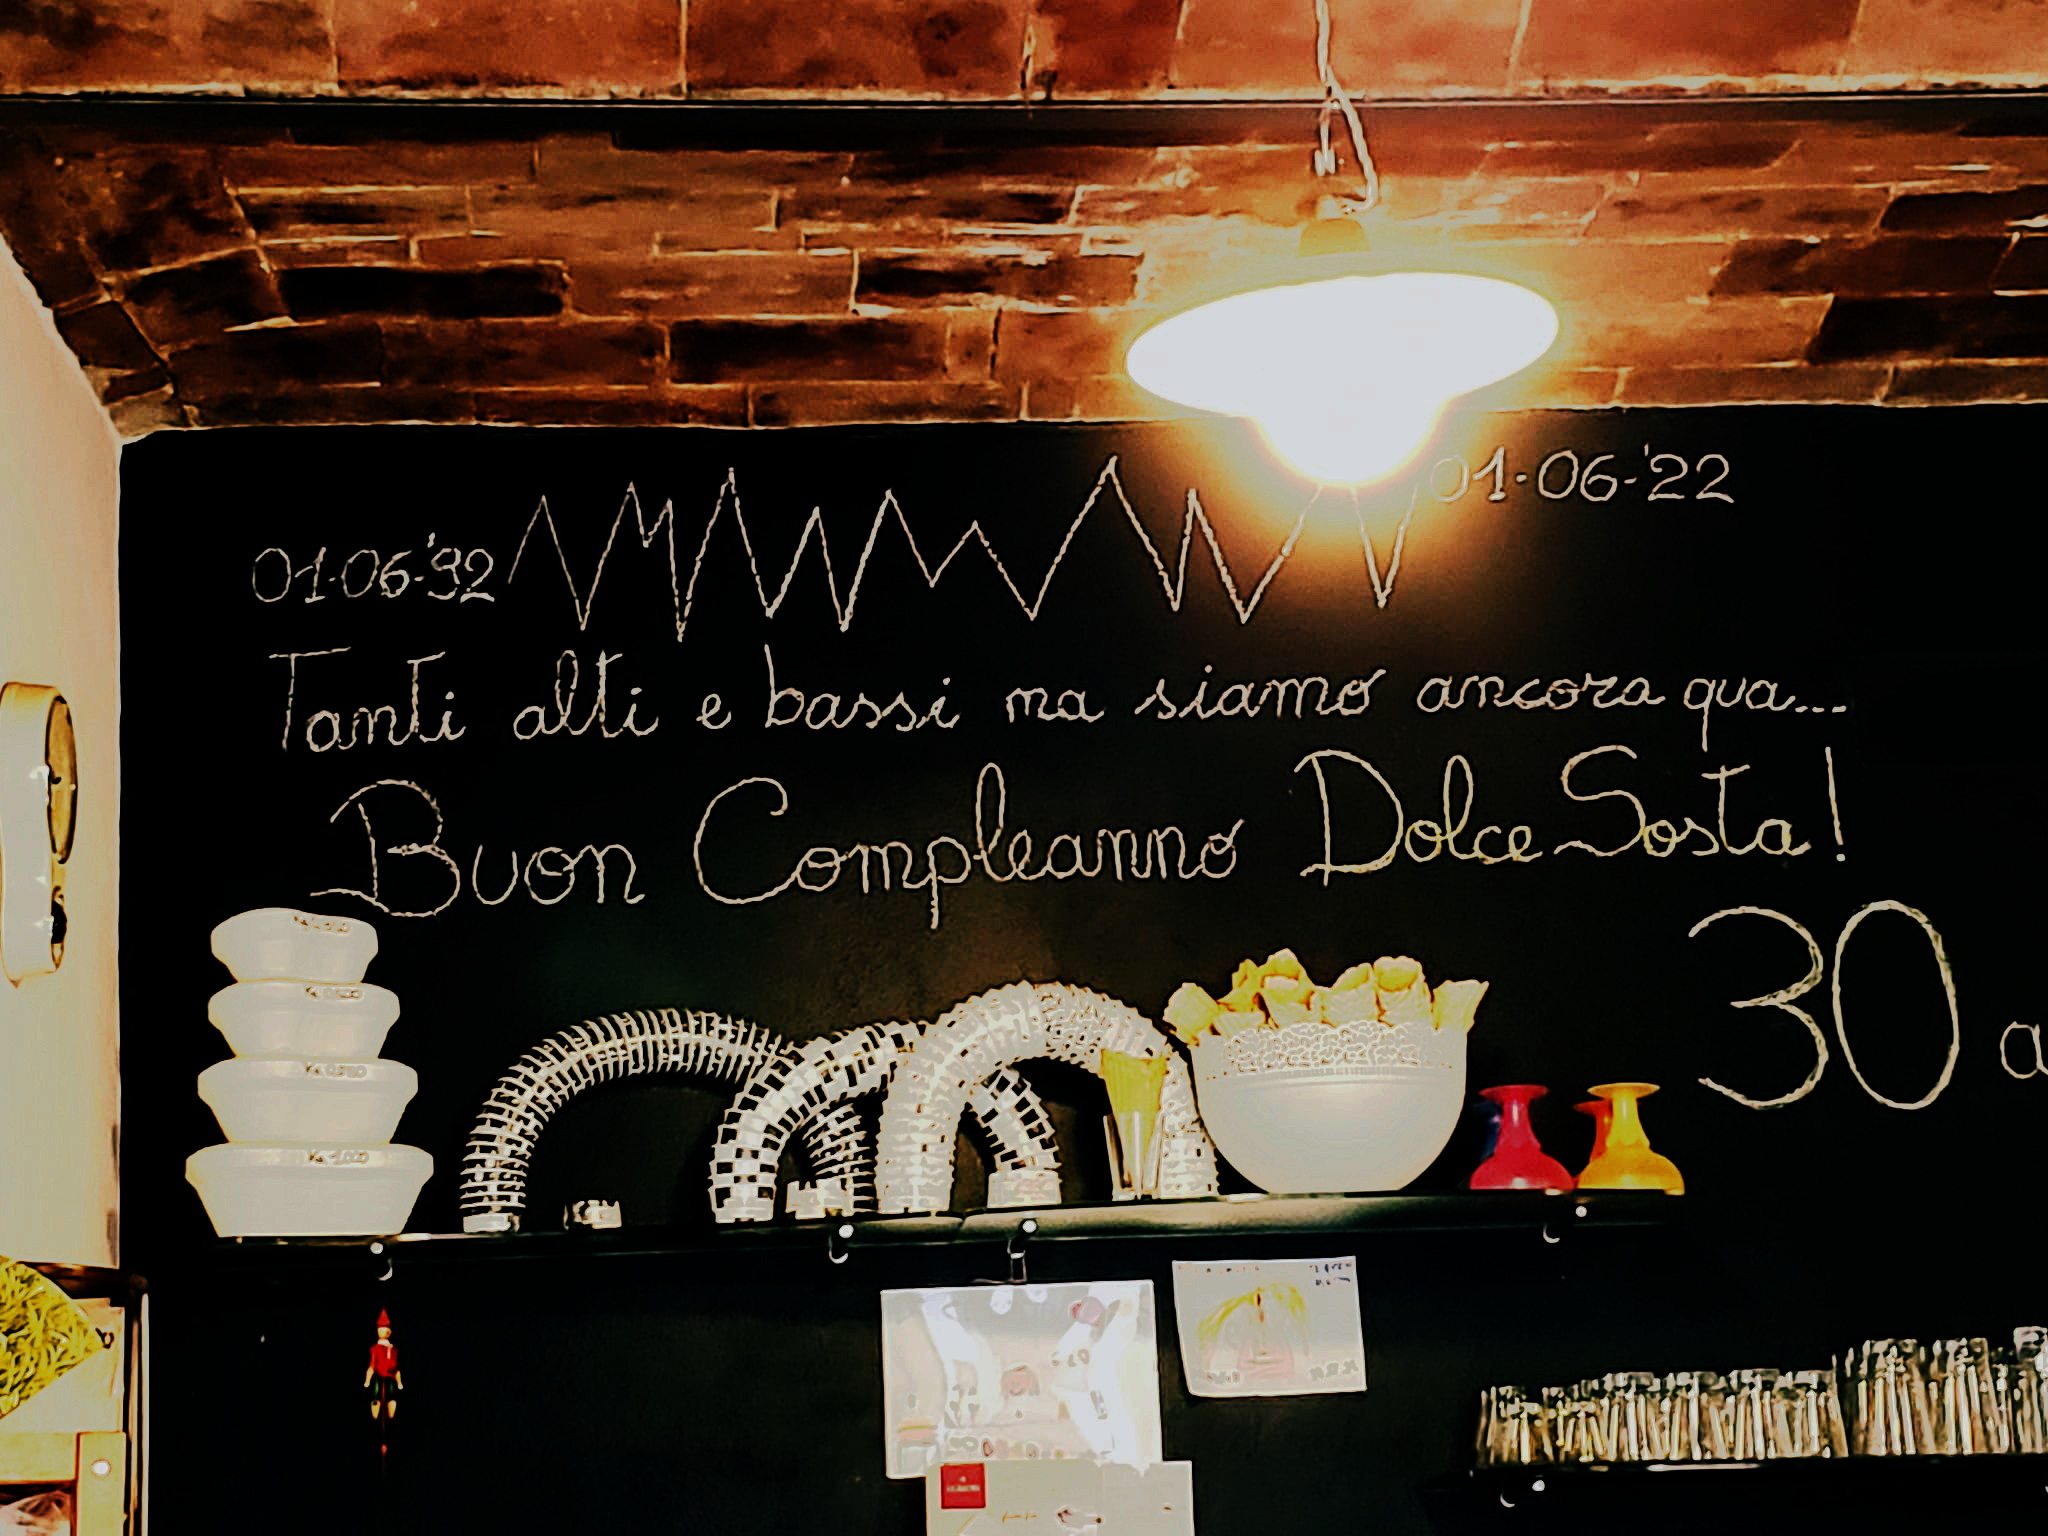 01-06-'92
01-06-'22
Tanti alti e bassi ma siamo ancora qua...
Buon Compleanno Dolce Sosta!
30 a